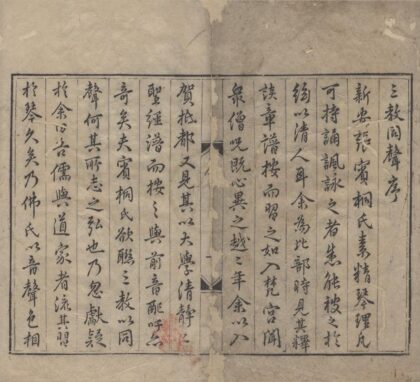 三教同聲序
新安張賓桐氏素精琴理凡
可持誦諷詠之者悉能被之於
以清人耳余為比部時見其釋
談章譜按而習之如入梵宮聞
衆僧咒既心異之越二年余以入
賀抵都又見其以大學清静二
聖經譜而按之與前音配吁亦
奇矣夫賓桐氏欲聯三教以同
聲何其所志之弘也乃忽獻疑
於余曰吾儒與道家者流其習
於琴久矣乃佛氏以音聲色相